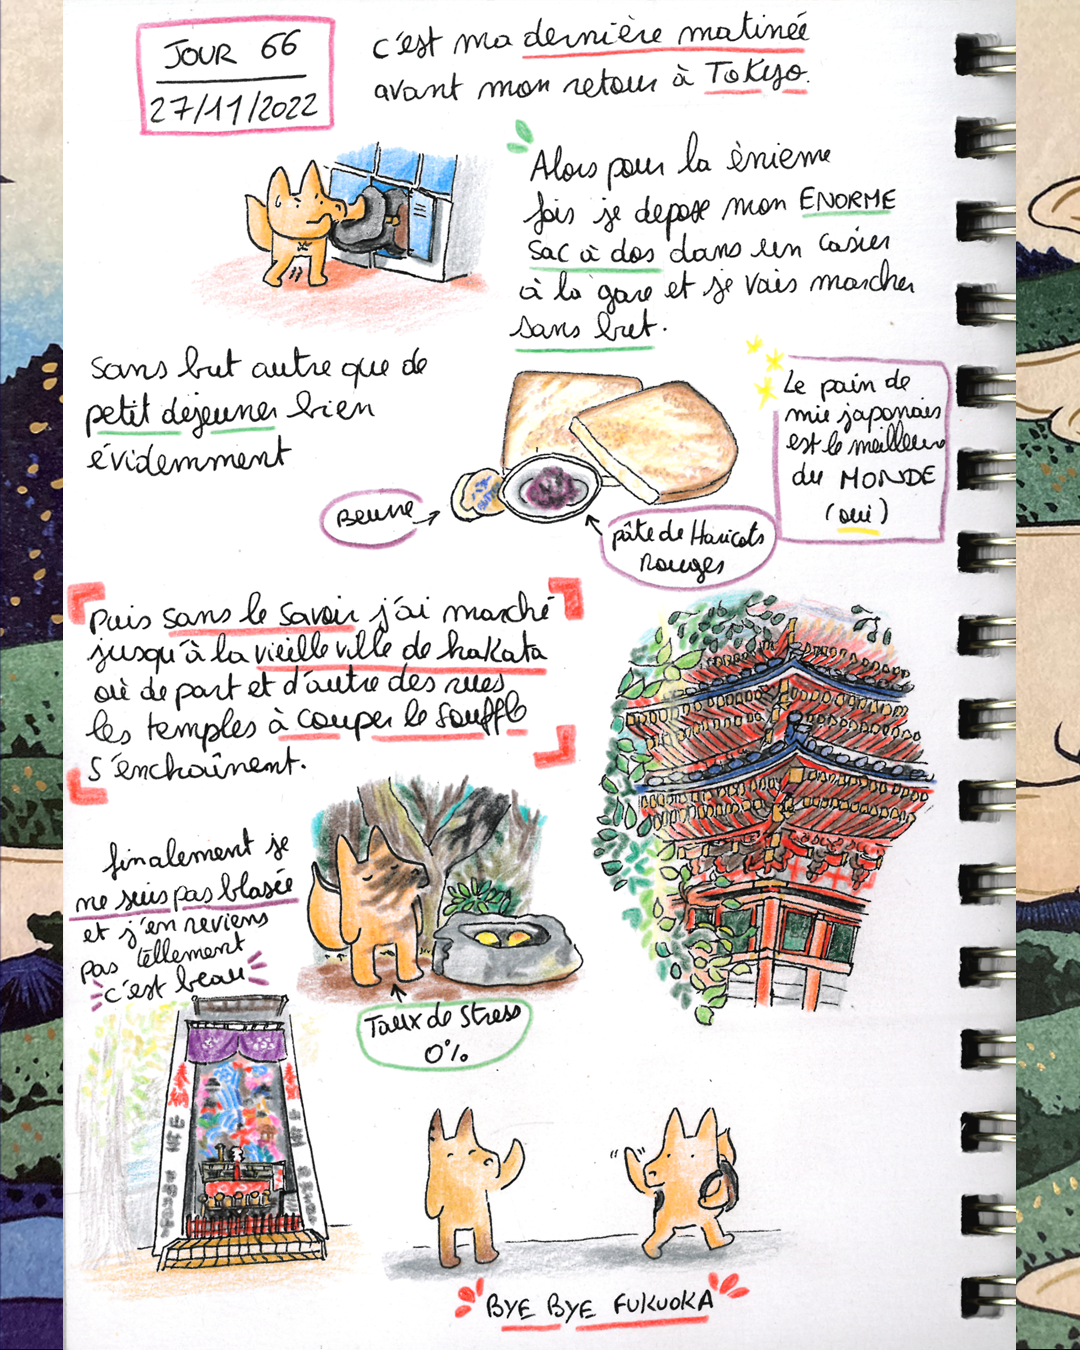 JOUR 66
27/11/2022
c'est ma dernière matinée
avant mon retour à TOKYO.
Alors pour la énieme
fois je depose mon ENORME
sac à dos dans un casier
à la gare et je vais marcher
sans but.
sans but autre que de
petit dejeuner bien
évidemment
Le pain de
mie japonais
est le meilleur
du MONDE
(oui)
Beurre
pâte de Haricots
Rouges
Puis sans le savoir j'ai marché
jusqu'à la vieille ville de hakata
où de part et d'autre des rues
les temples à couper le souffle
s'enchaînent.
finalement je
me suis pas blasée
et j'en reviens
pas tellement
c'est beau
Taux de Stress
0%
BYE BYE FUKUOKA